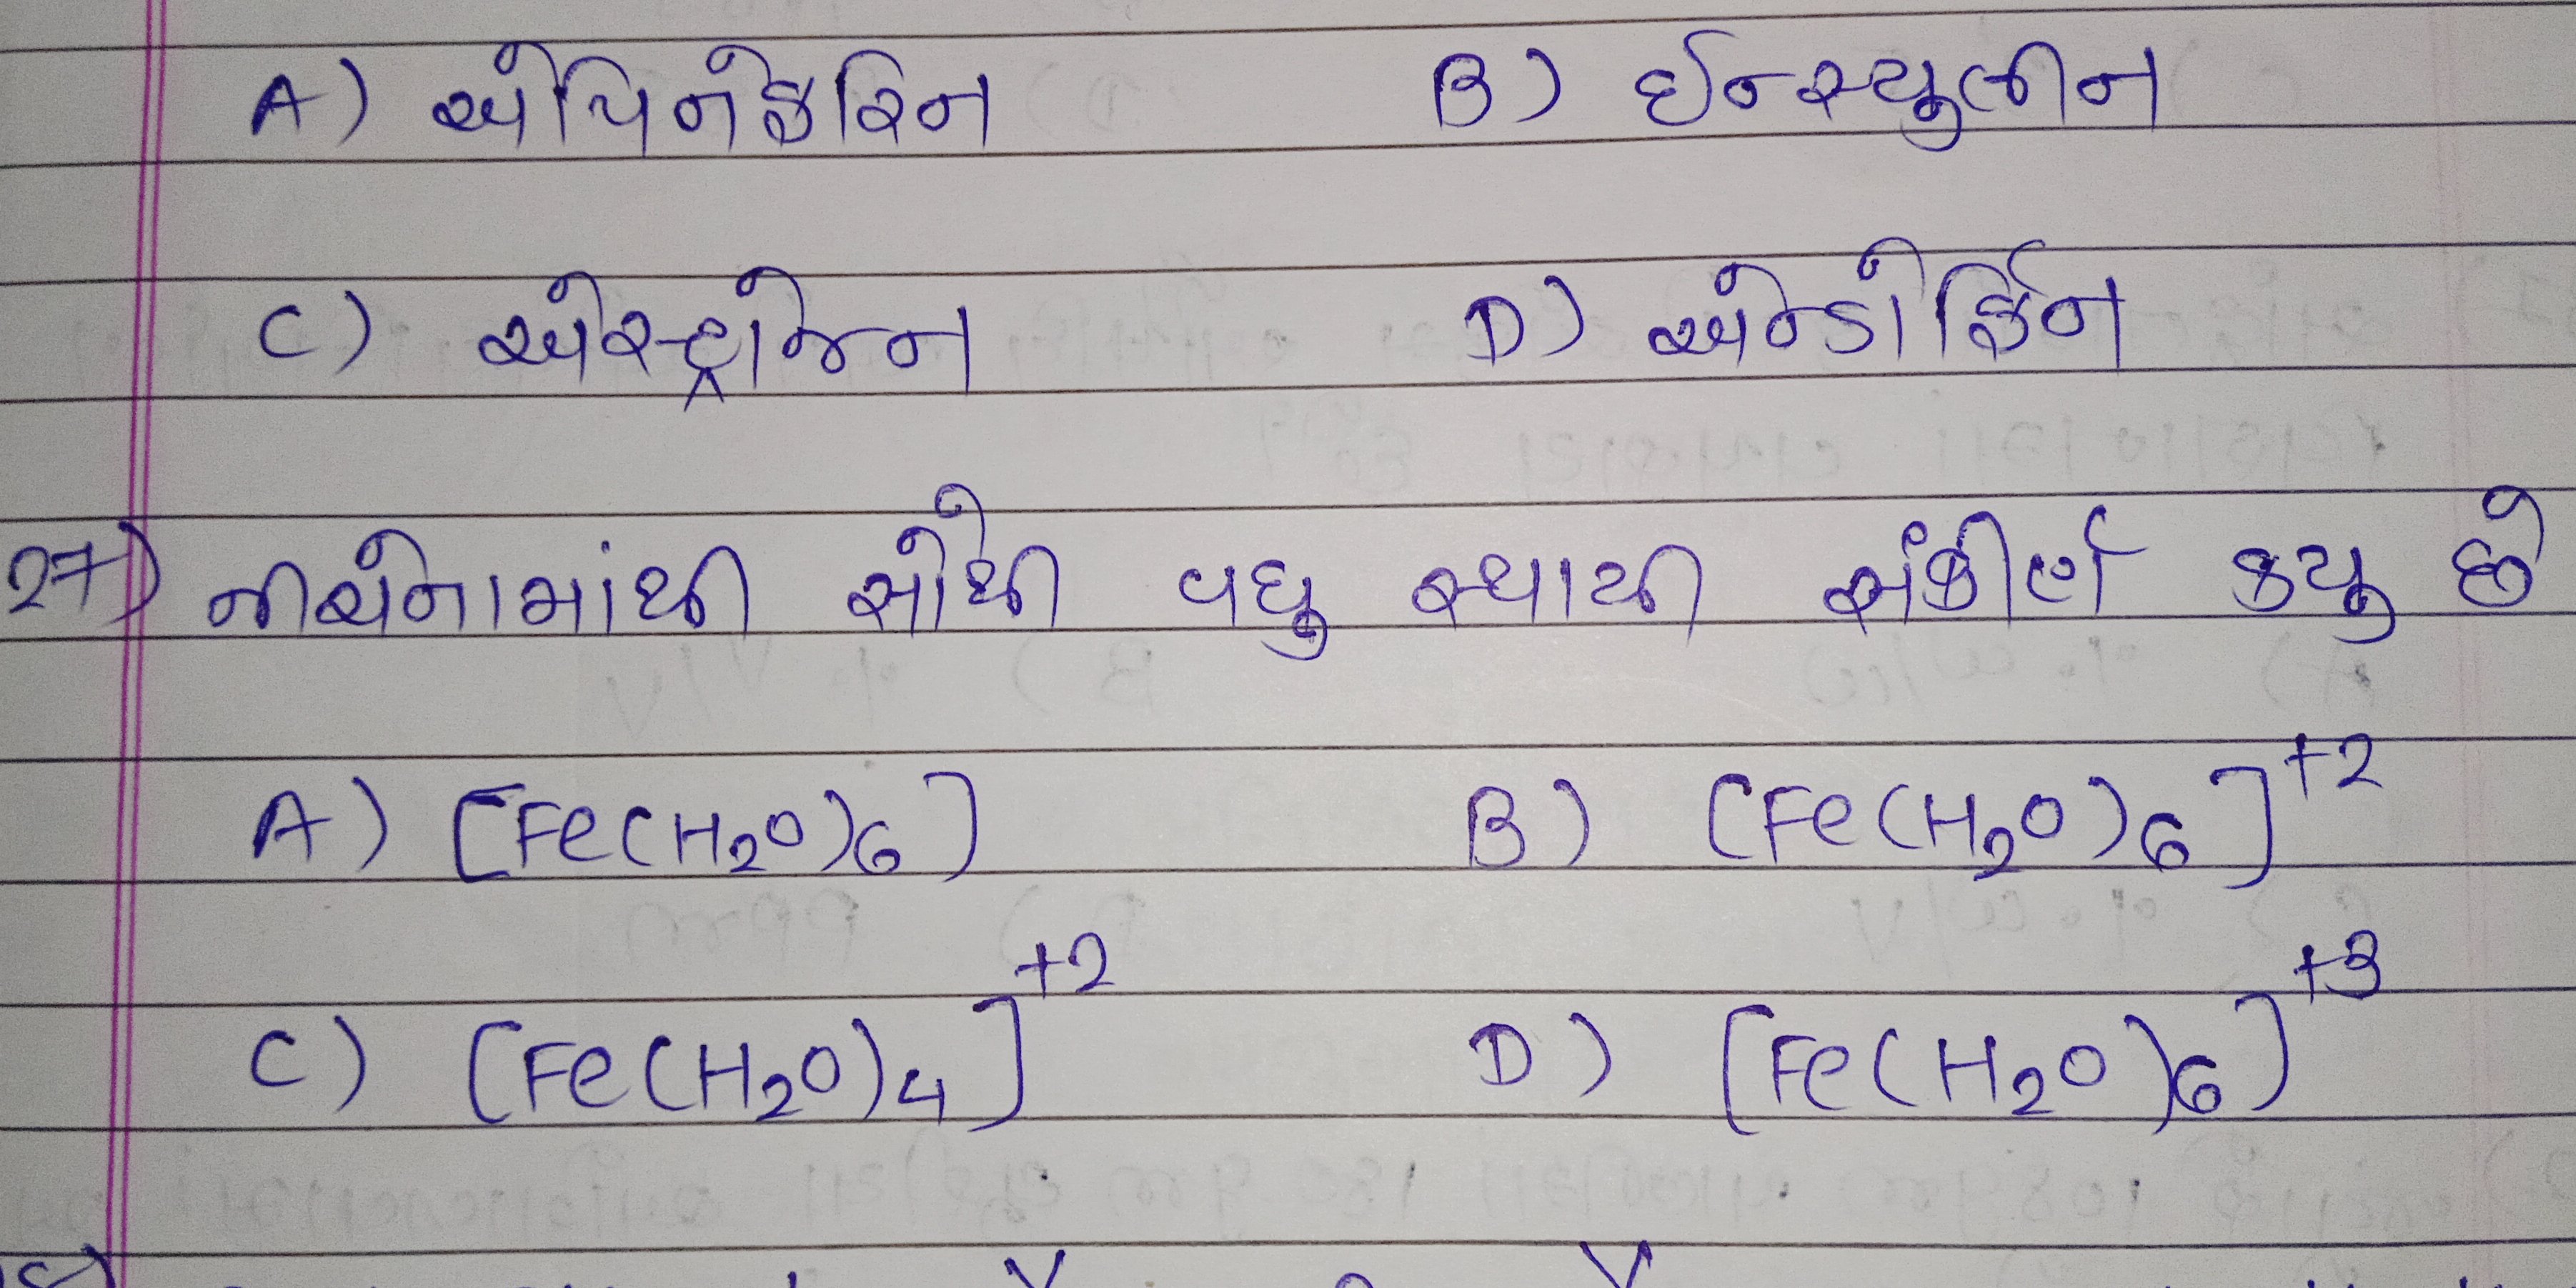 A) એપિનેફરિન B) ઈન્સ્યુલીન
C) એસ્ટ્રોજન D) એન્ડોર્ફિન
27) નીચેનામાંથી સૌથી વધુ સ્થાયી સંકીર્ણ કયુ છે
A) [Fe(H₂O)₆] B) [Fe(H₂O)₆]⁺²
C) [Fe(H₂O)₄]⁺² D) [Fe(H₂O)₆]⁺³